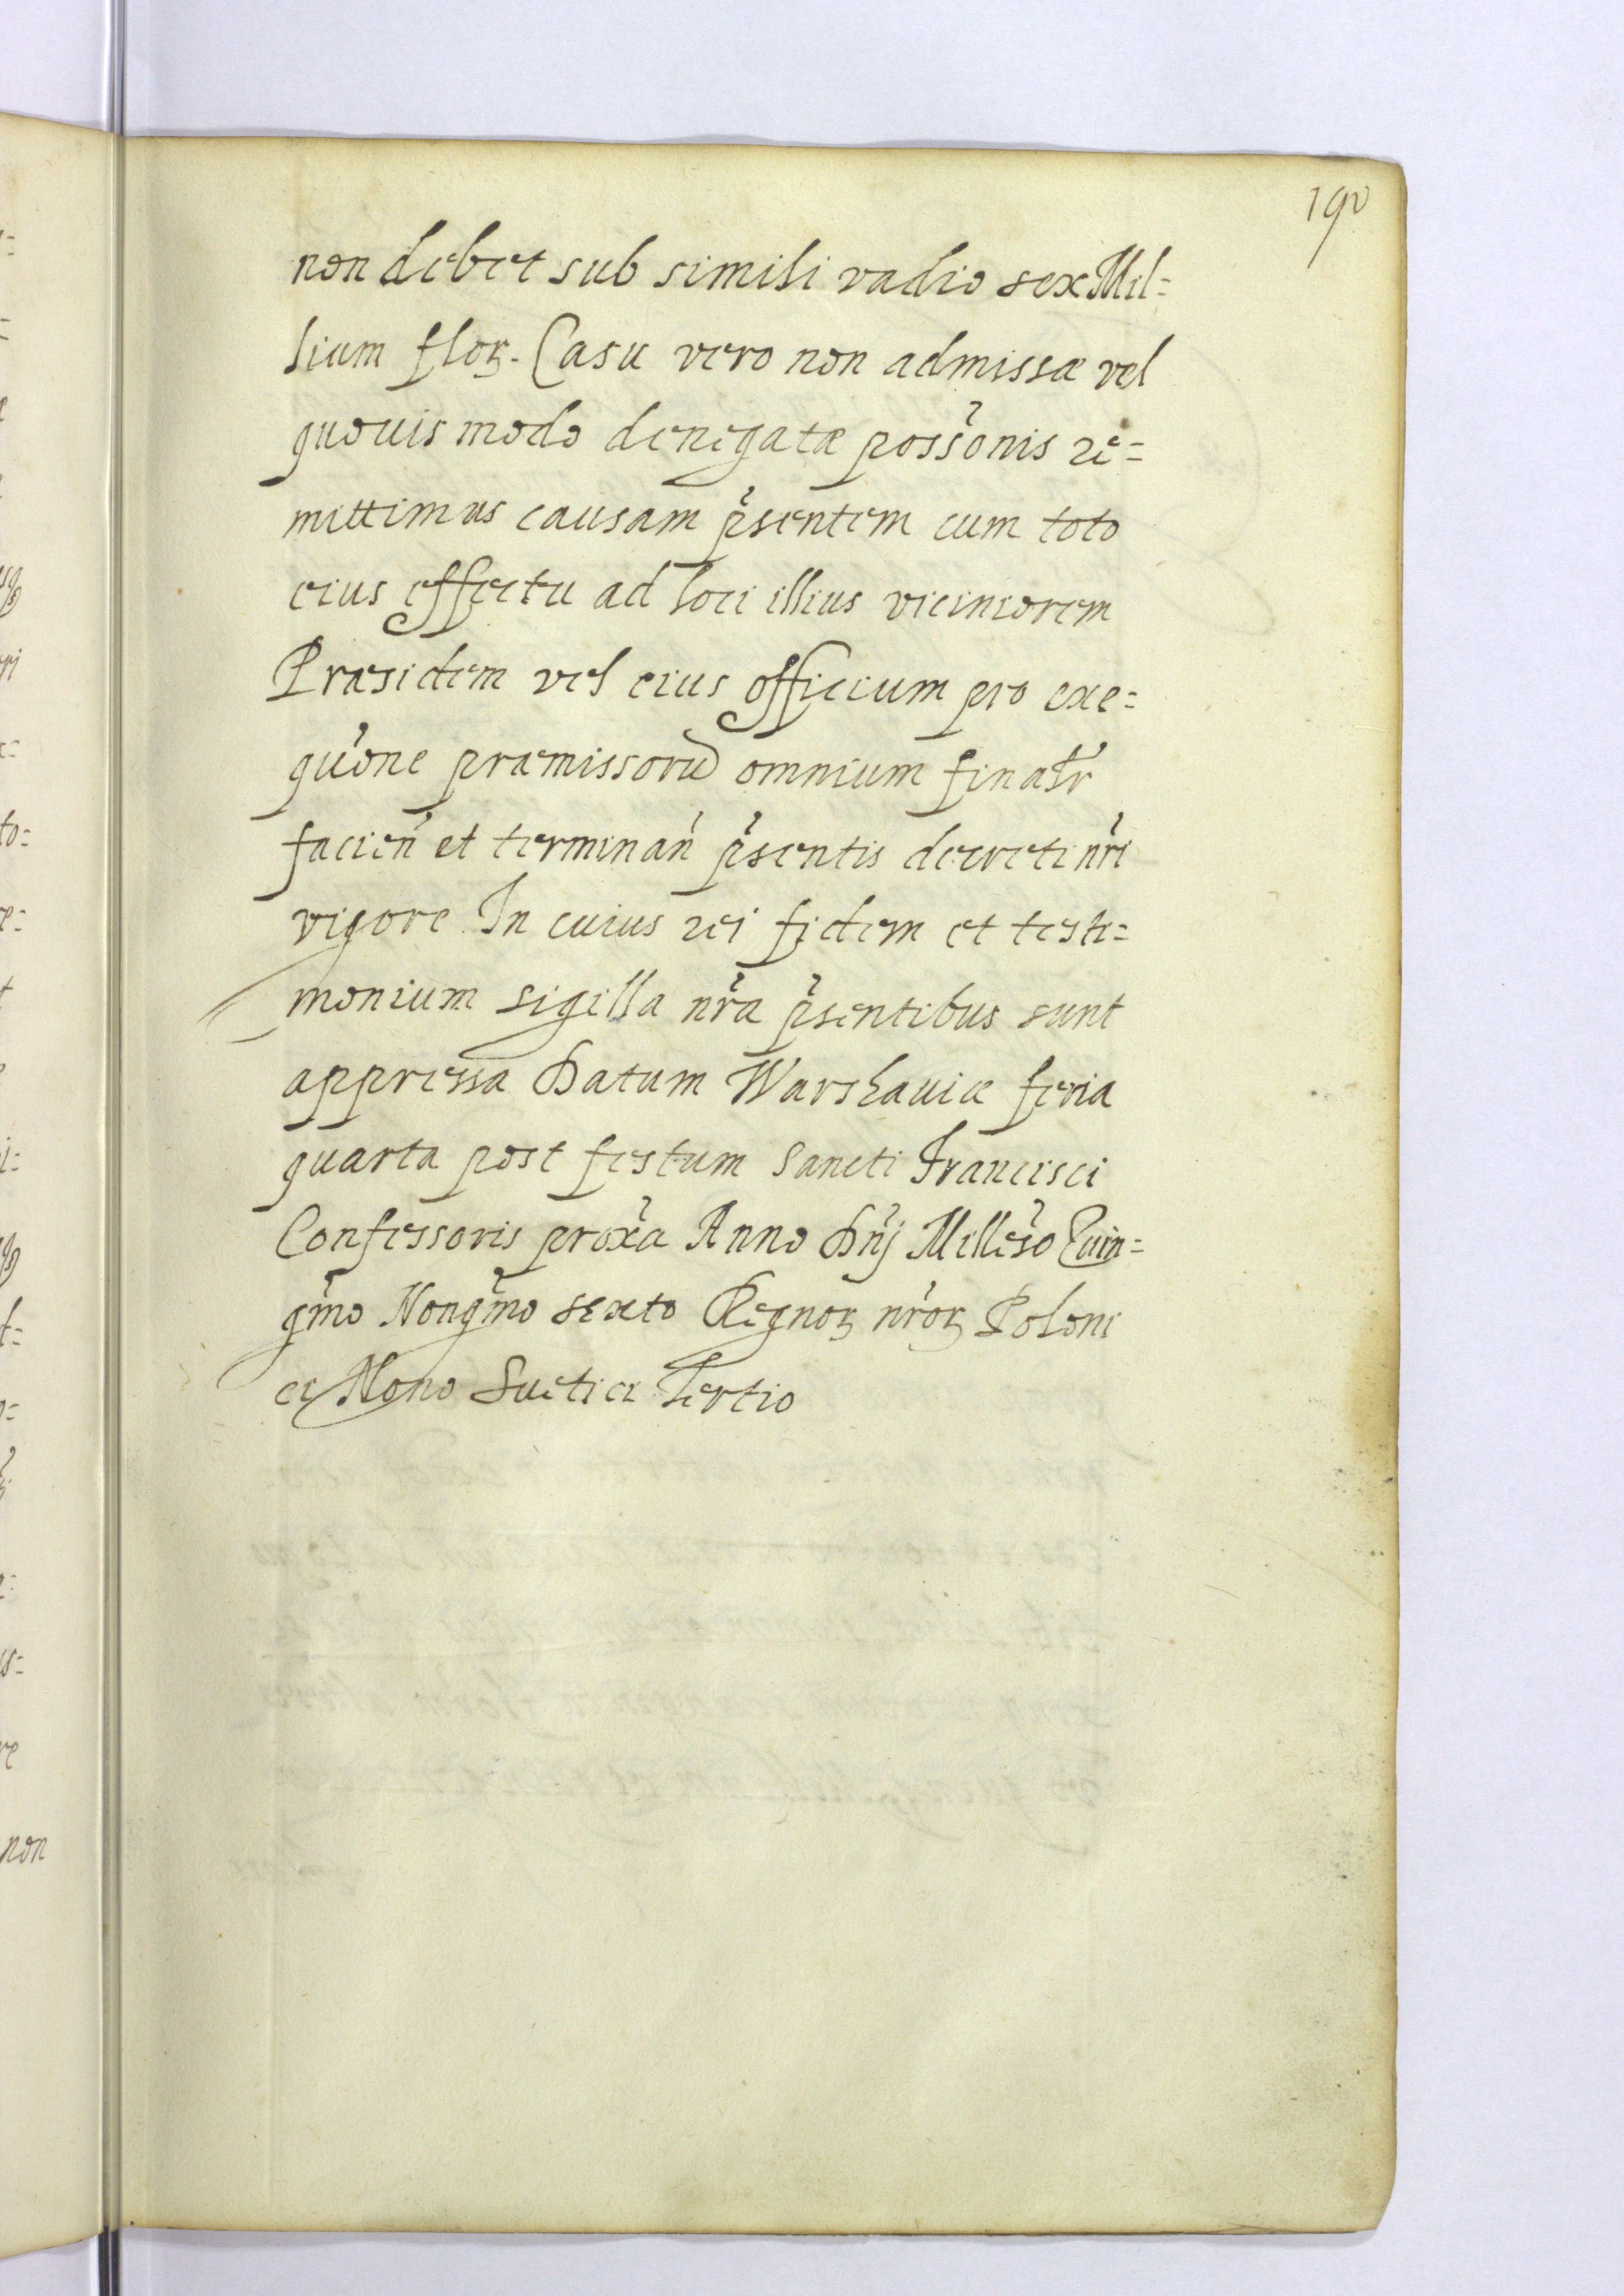 190
non debet sub simili vadio sex Mil=
lium floꝝ. Casu vero non admissæ vel
quouis modo denegatæ poss̉onis re=
mittimus causam p̉sentem cum toto
eius effectu ad loci illius viciniorem
Præsidem vel eius officium pro exe=
qủone præmissorū omnium finalr̉
facien̉ et terminan̉ p̉sentis decreti nr̉i
vigore. In cuius rei fidem et testi=
monium sigilla nr̉a p̉sentibus sunt
appressa Datum Warshauiæ feria
quarta post festum Sancti Francisci
Confessoris prox̉a Anno Dn̉j Milles̉o Quin=
gm̉o Nonagm̉o sexto Regnoꝝ nr̉oꝝ Poloni
ci Nono Suetici Tertio
non